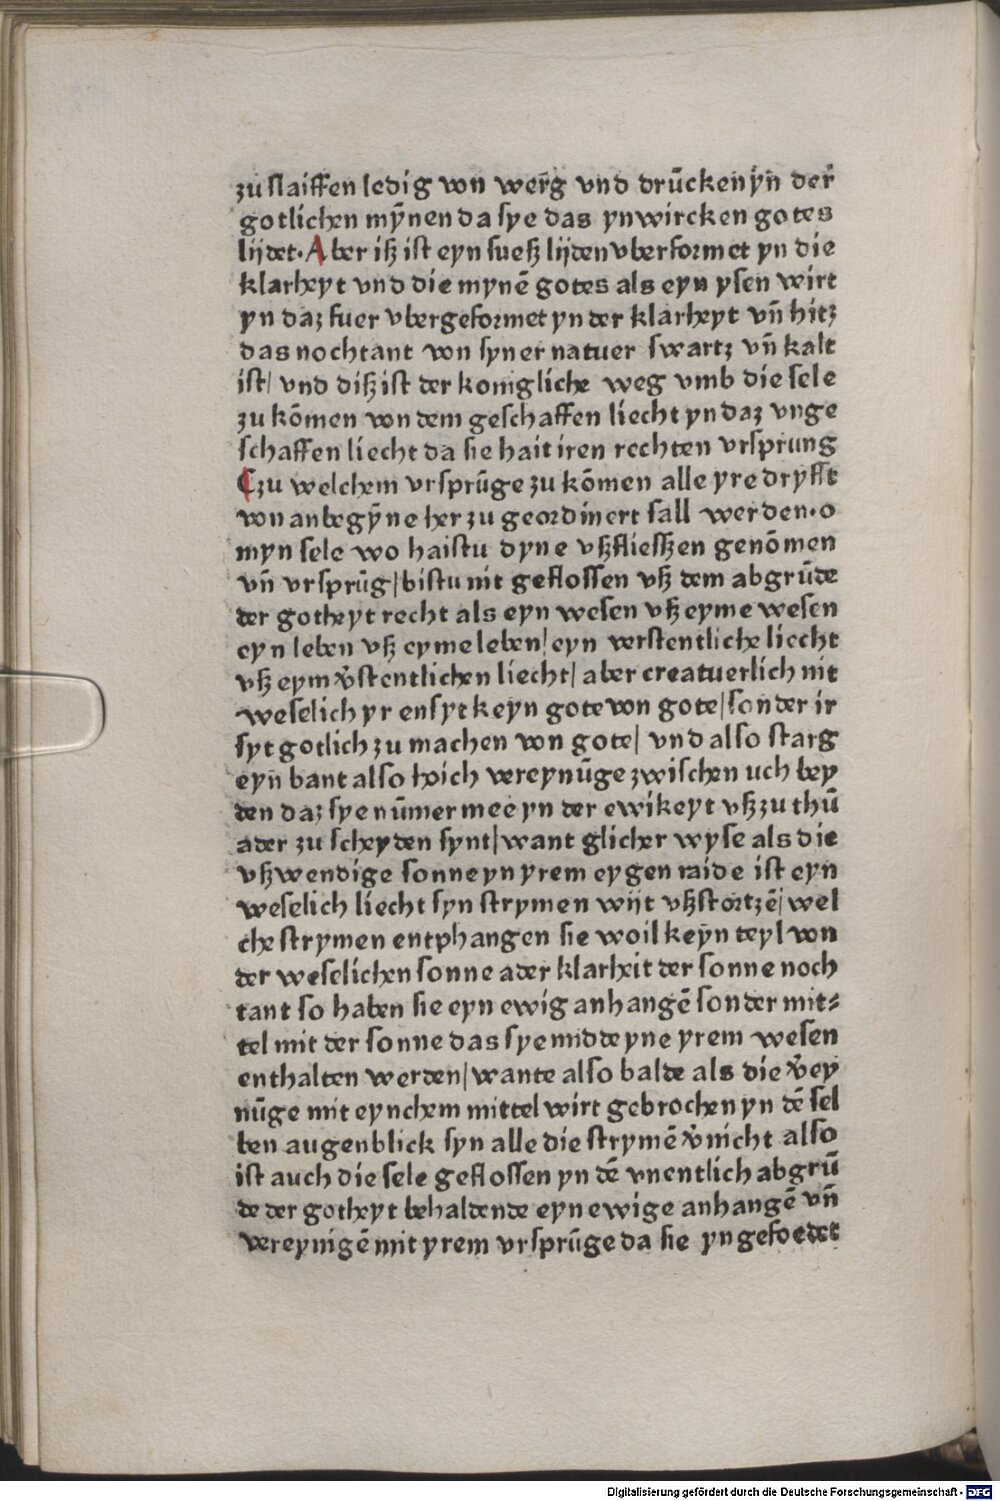 zu slaiffen ledig von werg vnd drūcken yn der
gotlichen mȳnen da sye das ynwircken gotes
lijdet·Aber iß ist eyn sueß lijden vberformet yn die
klarheyt vnd die mynē gotes als eyn ysen wirt
yn daz fuer vbergeformet yn der klarheyt vn̄ hitz
das nochtant von syner natuer swartz vn̄ kalt
ist/ vnd diß ist der konigliche weg vmb die sele
zu kōmen von dem geschaffen liecht yn daz vnge
schaffen liecht da sie hait iren rechten vrsprung
Czu welchem vrsprūge zu kōmen alle yre dryfft
von anbegȳne her zu geordinert sall werden·o
myn sele wo haistu dyne vßfliessen genōmen
vn̄ vrsprūg/bistu nit geflossen vß dem abgrūde
der gotheyt recht als eyn wesen vß eyme wesen
eyn leben vß eyme leben/eyn verstentliche liecht
vß eym v̄stentlichen liecht/ aber creatuerlich nit
weselich yr ensyt keyn gote von gote/sonder ir
syt gotlich zu machen von gote/ vnd also starg
eyn bant also hoich vereynūge zwischen uch bey
den daz sye nūmer mee yn der ewikeyt vßzuthū
ader zu scheyden synt/want glicher wyse als die
vßwendige sonne yn yrem eygen raide ist eyn
weselich liecht syn strymen wijt vßstortzē/wel
che strymen entphangen sie woil keyn teyl von
der weselichen sonne ader klarheit der sonne noch
tant so haben sie eyn ewig anhangē sonder mit⸗
tel mit der sonne das sye midde yne yrem wesen
enthalten werden/wante also balde als die v̄ey
nūge mit eynchem mittel wirt gebrochen yn dē sel
ben augenblick syn alle die strymē v̄nicht also
ist auch die sele geflossen yn dē vnentlich abgrū
de der gotheyt behaldende eyn ewige anhangē vn̄
vereynigē mit yrem vrsprūge da sie yn gefoedet
Digitalisierung gefördert durch die Deutsche Forschungsgemeinschaft - DFG